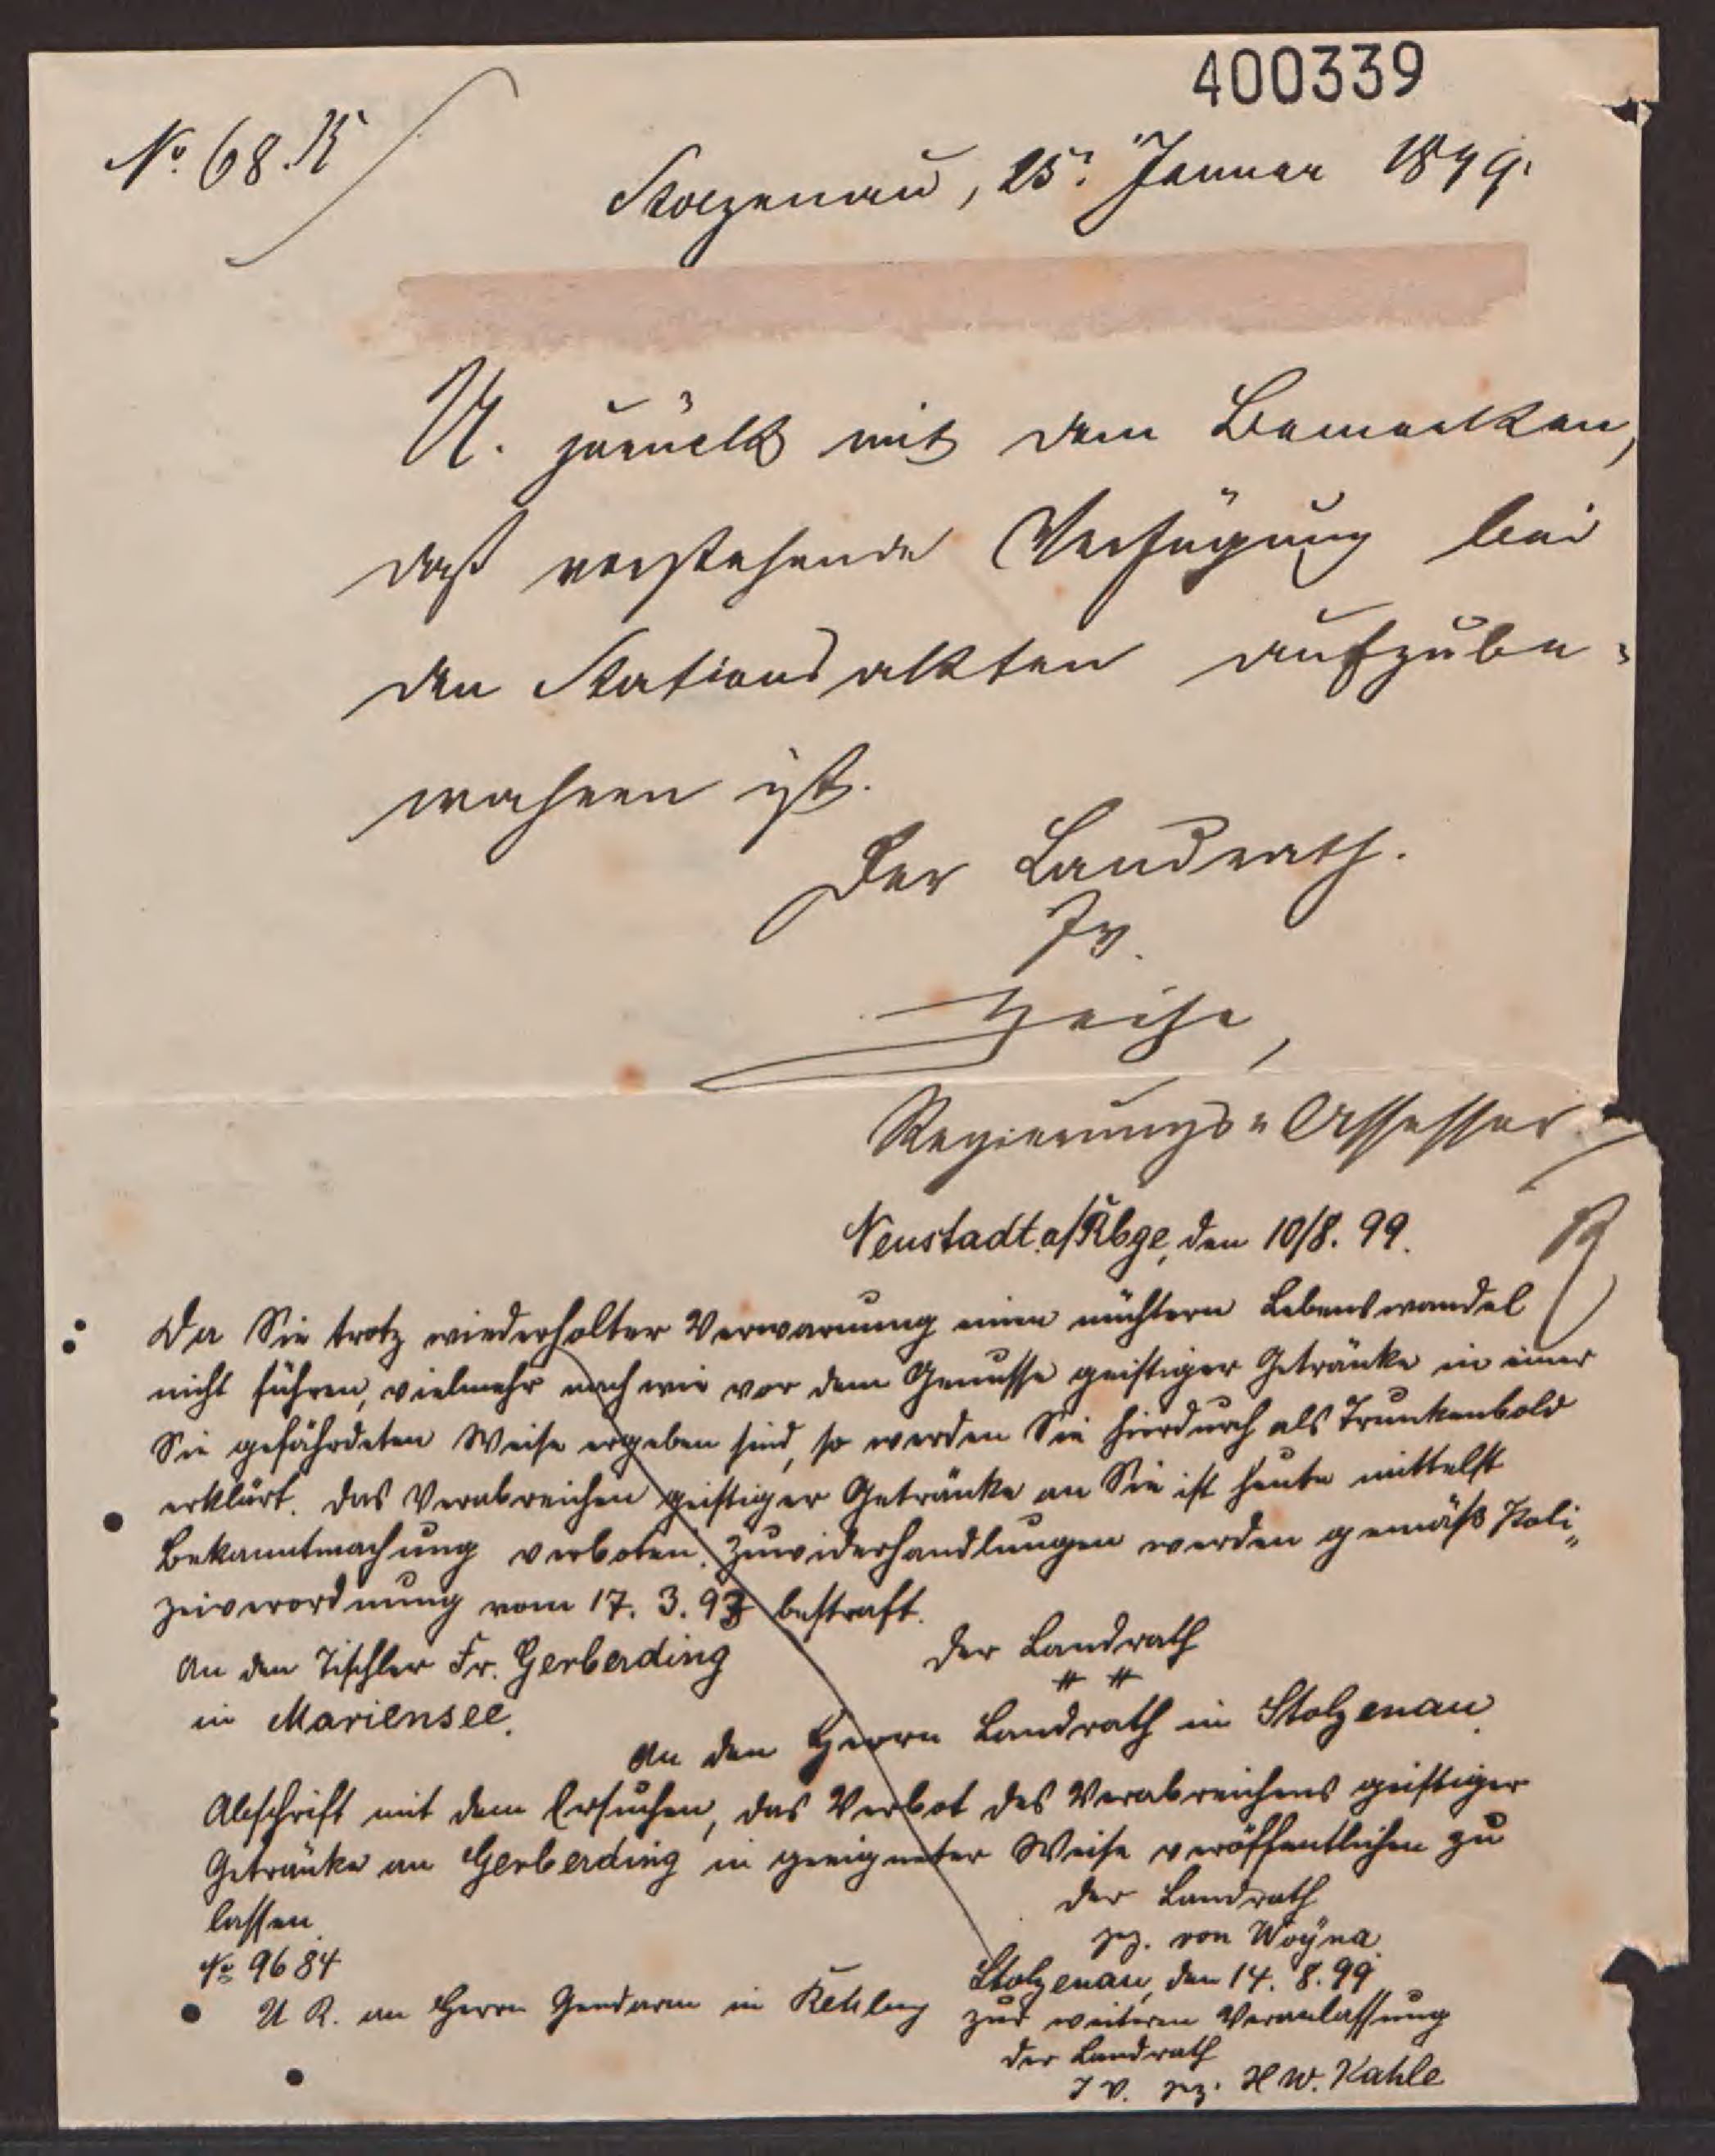 400339
No. 68. K
Stolzenau, 25. Januar 1899.
U. zurück mit dem Bemerken,
daß vorstehende Verfügung bei
den Stationsakten aufzube=
wahren ist.
Der Landrath.
Iv.
Heise,
Regierungs=Assessor
Neustadt a/Rbge, den 10/8. 99.
Da Sie trotz wiederholter Verwarnung einen nüchtern Lebenswandel
nicht führen, vielmehr nach wie vor dem Genusse geistiger Getränke in einer
Sie gefährdeten Weise ergeben sind, so werden Sie hierdurch als Trunkenbold
erklärt. Das Verabreichen geistiger Getränke an Sie ist heute mittelst
Bekanntmachung verboten. Zuwiderhandlungen werden gemäß Poli„
zeiverordnung vom 17. 3. 93 bestraft.
An den Tischler Fr. Gerberding
in Mariensee.
Der Landrath
An den Herrn Landrath in Stolzenau.
Abschrift mit dem Ersuchen, das Verbot des Verabreichens geistiger
Getränke an Gerberding in geeigneter Weise veröffentlichen zu
lassen.
Der Landrath
gez. von Woÿna.
No 9684
Stolzenau, den 14. 8. 99
U R. an Herrn Gendarm in Rehburg zur weiteren Veranlassung
Der Landrath
I V. gez. H W. Kahle